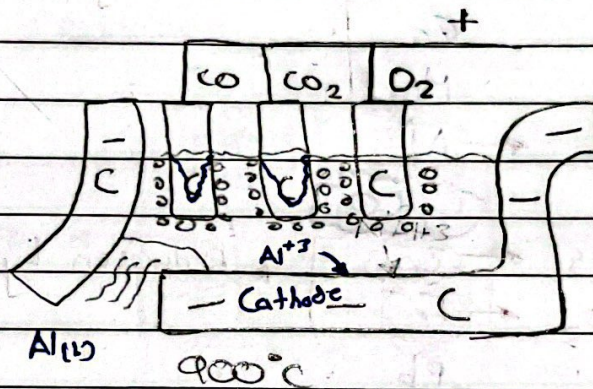 +
CO CO₂ O₂
− −
C C C C
−
Al⁺³
− Cathode − C
Al(l)
900°C